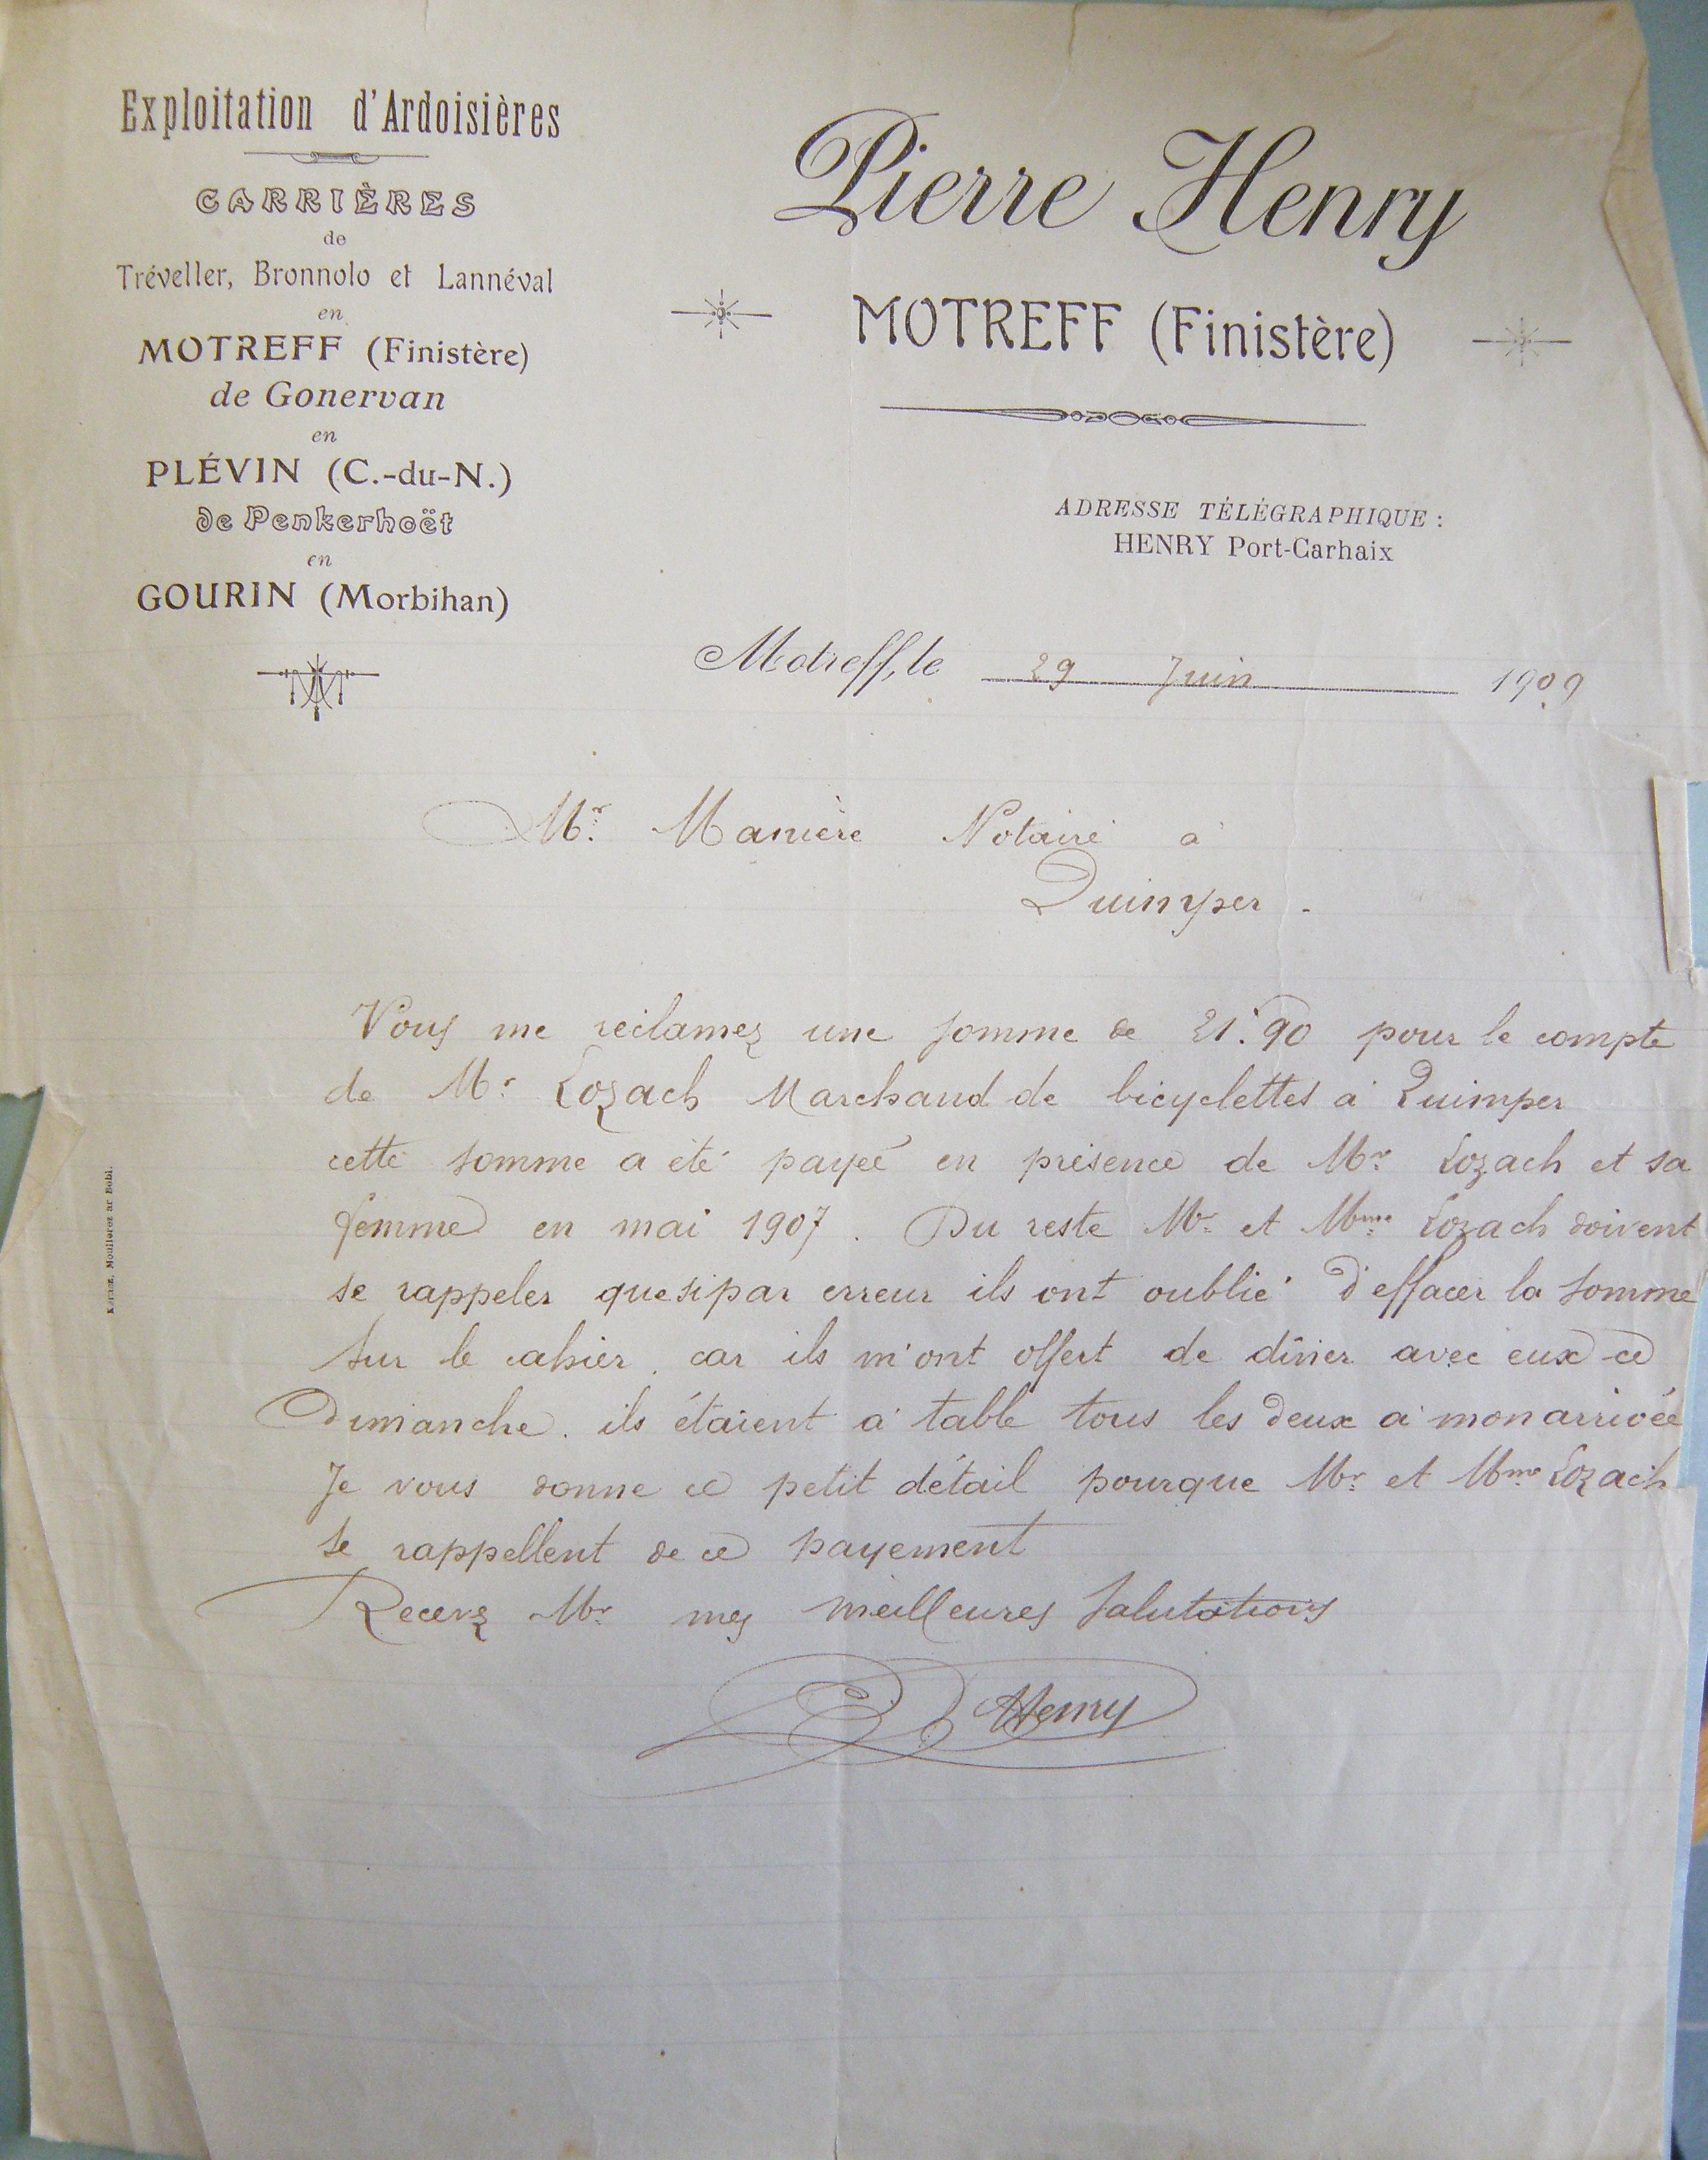 Exploitation d'Ardoisières
CARRIÈRES
de
Tréveller, Bronnolo et Lannéval
en
MOTREFF (Finistère)
de Gonervan
en
PLÉVIN (C.-du-N.)
de Penkerhoët
en
GOURIN (Morbihan)
Pierre Henry
MOTREFF (Finistère)
ADRESSE TÉLÉGRAPHIQUE :
HENRY Port-Carhaix
Motreff, le 29 Juin 1909
Mr. Manière Notaire à
Quimper.
Vous me réclamez une somme de 21.90 pour le compte
de Mr. Lozach Marchand de bicyclettes à Quimper
cette somme a été payée en présence de Mr. Lozach et sa
femme en mai 1907. Du reste Mr. et Mme. Lozach doivent
se rappeler que si par erreur ils ont oublié d'effacer la somme
sur le cahier. car ils m'ont offert de dîner avec eux ce
Dimanche. ils étaient à table tous les deux à mon arrivée
Je vous donne ce petit détail pourque Mr. et Mme. Lozach
se rappellent de ce payement
Recevez Mr. mes meilleures salutations
Henry